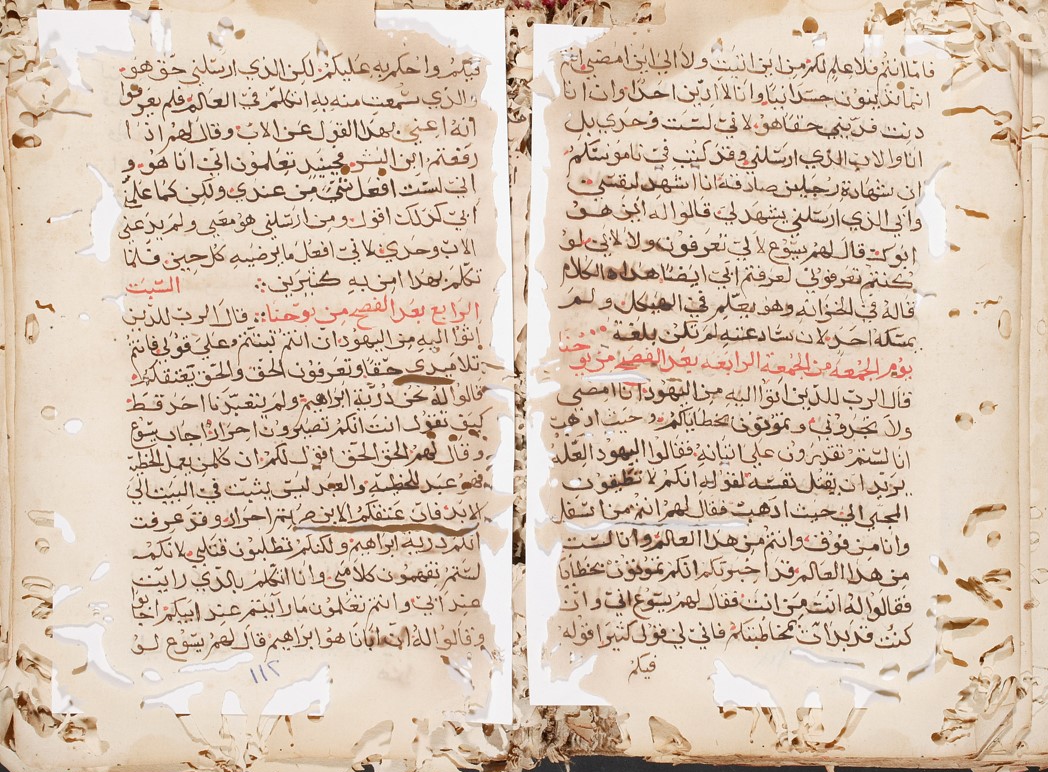 فاما انتم فلا علم لكم من اين اتيت ولا الى اين امضي
انما تدينون جسدانيا وانا لا ادين احدا وان انا
دنت فديني حقا هو لاني لست وحدي بل
انا والاب الذي ارسلني وقد كتب في ناموسكم
ان شهادة رجلين صادقه انا اشهد لنفسي
وابي الذي ارسلني يشهد لي قالوا له اين هو
ابوك قال لهم يسوع لا لي تعرفون ولا لابي لو
كنتم تعرفوني لعرفتم ابي ايضا هذا الكلام
قاله في الخزانه وهو يعلم في الهيكل ولم
يمسكه احد لان ساعته لم تكن بلغت
يوم الجمعه من الجمعة الرابعه بعد الفصح من يوحنا
قال الرب للذين اتوا اليه من اليهود انا امضي
ولا تجدوني وتموتون بخطاياكم وحيث اذهب
انا لستم تقدرون على اتيانه فقالوا اليهود العله
يريد ان يقتل نفسه لقوله انكم لا تطيقون
المجي الى حيث اذهب فقال لهم انتم من اسفل
وانا من فوق وانتم من هذا العالم وانا لست
من هذا العالم قد اخبرتكم انكم تموتون بخطايا
فقالوا له انت من انت فقال لهم يسوع اني وان
كنت قد بدات بمخاطبتكم فاني لي قول كثيرا اقوله
فيكم
فيكم واحكم به عليكم لكن الذي ارسلني حق هو
والذي سمعت منه به اتكلم في العالم فلم يعرفوا
انه اعني بهذا القول عن الاب وقال لهم اذا
رفعتم ابن البشر فحينيذ تعلمون اني انا هو و
اني لست افعل شي من عندي ولكن كما علمني
ابي كذلك اقول ومن ارسلني هو معي ولم يدعني
الاب وحدي لاني افعل ما يرضيه كل حين فلما
تكلم بهذا امن به كثيرين السبت
الرابع بعد الفصح من يوحنا قال الرب للذين
اتوا اليه من اليهود ان انتم ثبتم على قولي فانتم
تلاميذي حقا وتعرفون الحق والحق يعتقكم
قالوا له نحن ذرية ابراهيم ولم يتعبدنا احد قط
كيف تقول انت انكم تصيرون احرارا اجاب يسوع
وقال لهم الحق الحق اقول لكم ان كل من يعمل الخطيه
فهو عبد للخطيه والعبد ليس يثبت في البيت الى
الابد فان عتقكم الابن صرتم احرار وقد عرفت
انكم ذرية ابراهيم ولكنكم تطلبون قتلي لانكم
لستم تفهمون كلامي وانا اتكلم بالذي رايت
عند ابي وانتم تعلمون ما رايتم عند ابيكم اجابوا
وقالوا له ان ابانا هو ابراهيم قال لهم يسوع لو
١١٢